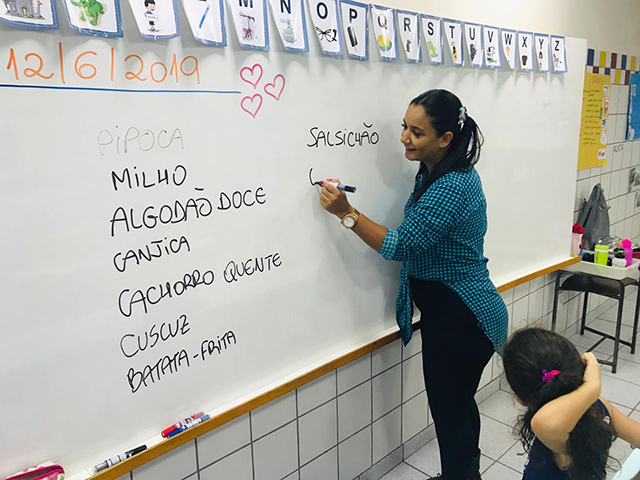 M N O P Q R S T U V W X Y Z
12/6/2019
PIPOCA
MILHO
ALGODÃO DOCE
CANJICA
CACHORRO QUENTE
CUSCUZ
BATATA-FRITA
SALSICHÃO